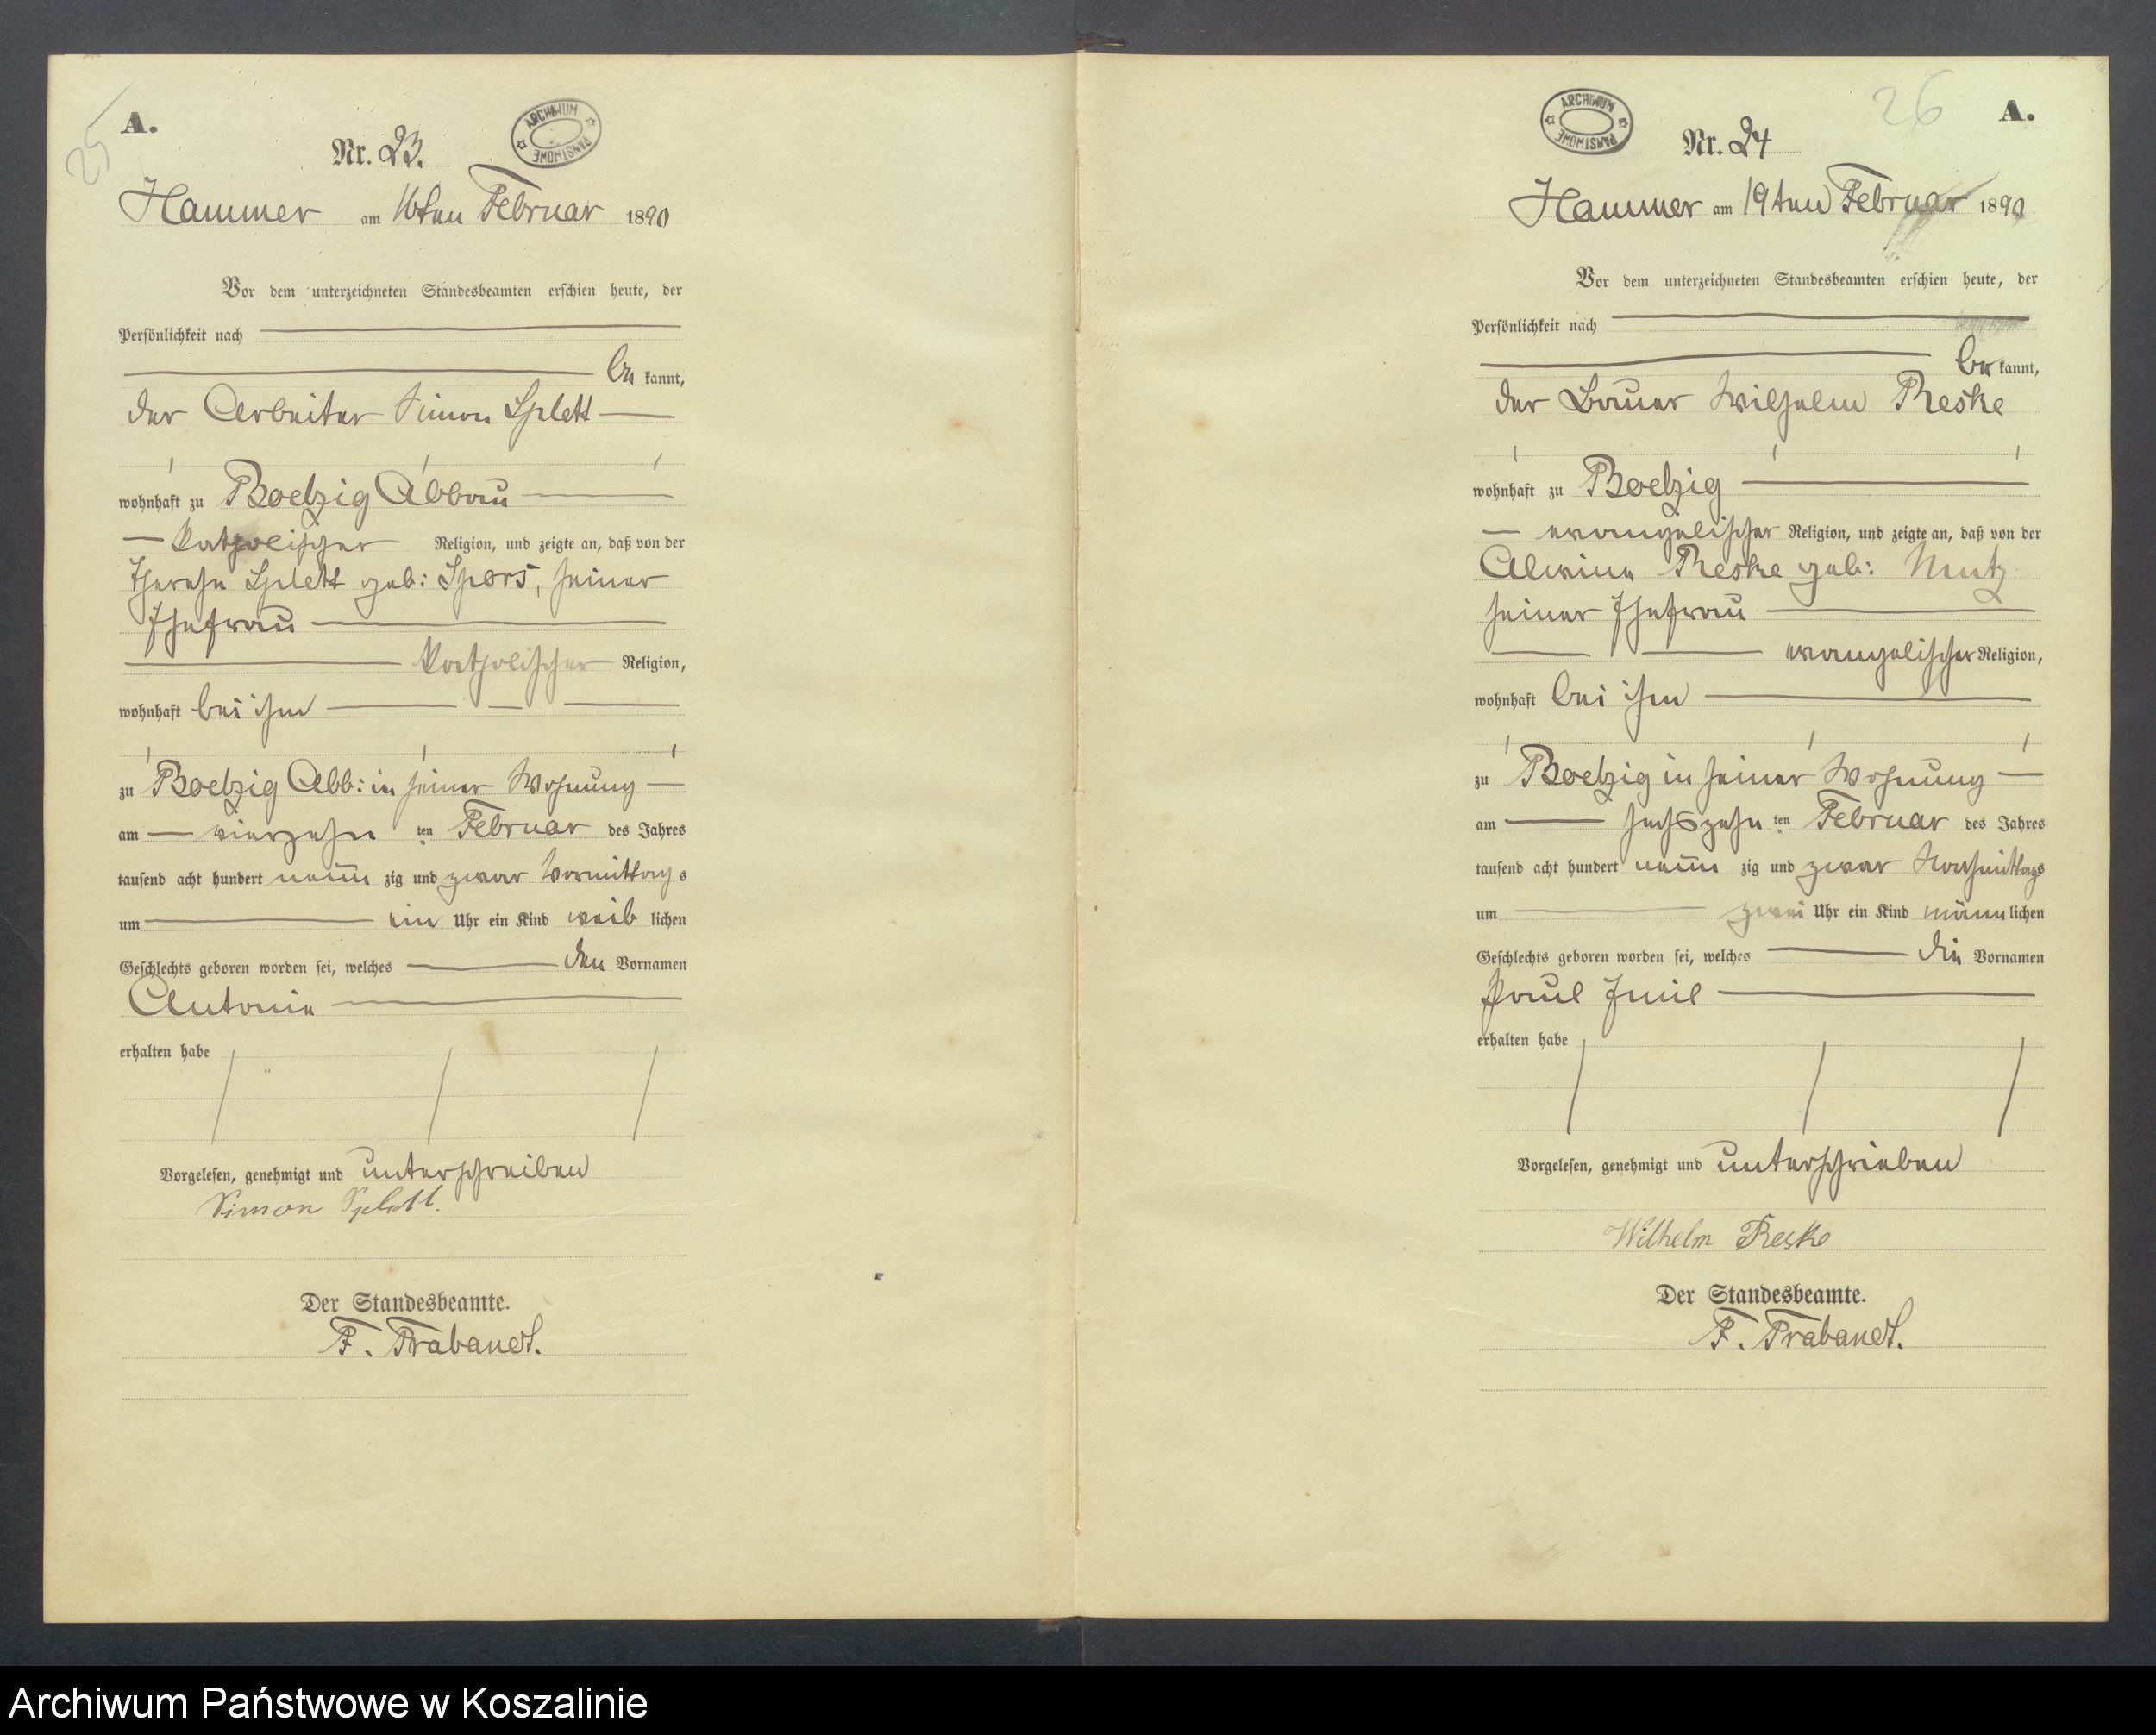 25
A.
Nr. 23.
ARCHIWUM PAŃSTWOWE
Hammer am 16ten Februar 1890
Vor dem unterzeichneten Standesbeamten erschien heute, der
Persönlichkeit nach
be kannt,
der Arbeiter Simon Splett
wohnhaft zu Boetzig Abbau
katholischer Religion, und zeigte an, daß von der
Therese Splett geb: Spors, seiner
Ehefrau
katholischer Religion,
wohnhaft bei ihm
zu Boetzig Abb: in seiner Wohnung
am vierzehn ten Februar des Jahres
tausend acht hundert neun zig und zwar Vormittag s
um ein Uhr ein Kind weib lichen
Geschlechts geboren worden sei, welches den Vornamen
Antonie
erhalten habe
Vorgelesen, genehmigt und unterschreiben
Simon Splett.
Der Standesbeamte.
F. Trabandt.
26
A.
ARCHIWUM PAŃSTWOWE
Nr. 24
Hammer am 19ten Februar 1890
Vor dem unterzeichneten Standesbeamten erschien heute, der
Persönlichkeit nach
be kannt,
der Bauer Wilhelm Reske
wohnhaft zu Boetzig
evangelischer Religion, und zeigte an, daß von der
Alwine Reske geb:
seiner Ehefrau
evangelischer Religion,
wohnhaft bei ihm
zu Boetzig in seiner Wohnung
am sechszehn ten Februar des Jahres
tausend acht hundert neun zig und zwar Nachmittags
um zwei Uhr ein Kind männ lichen
Geschlechts geboren worden sei, welches die Vornamen
Paul Emil
erhalten habe
Vorgelesen, genehmigt und unterschrieben
Wilhelm Reske
Der Standesbeamte.
F. Trabandt.
Archiwum Państwowe w Koszalinie